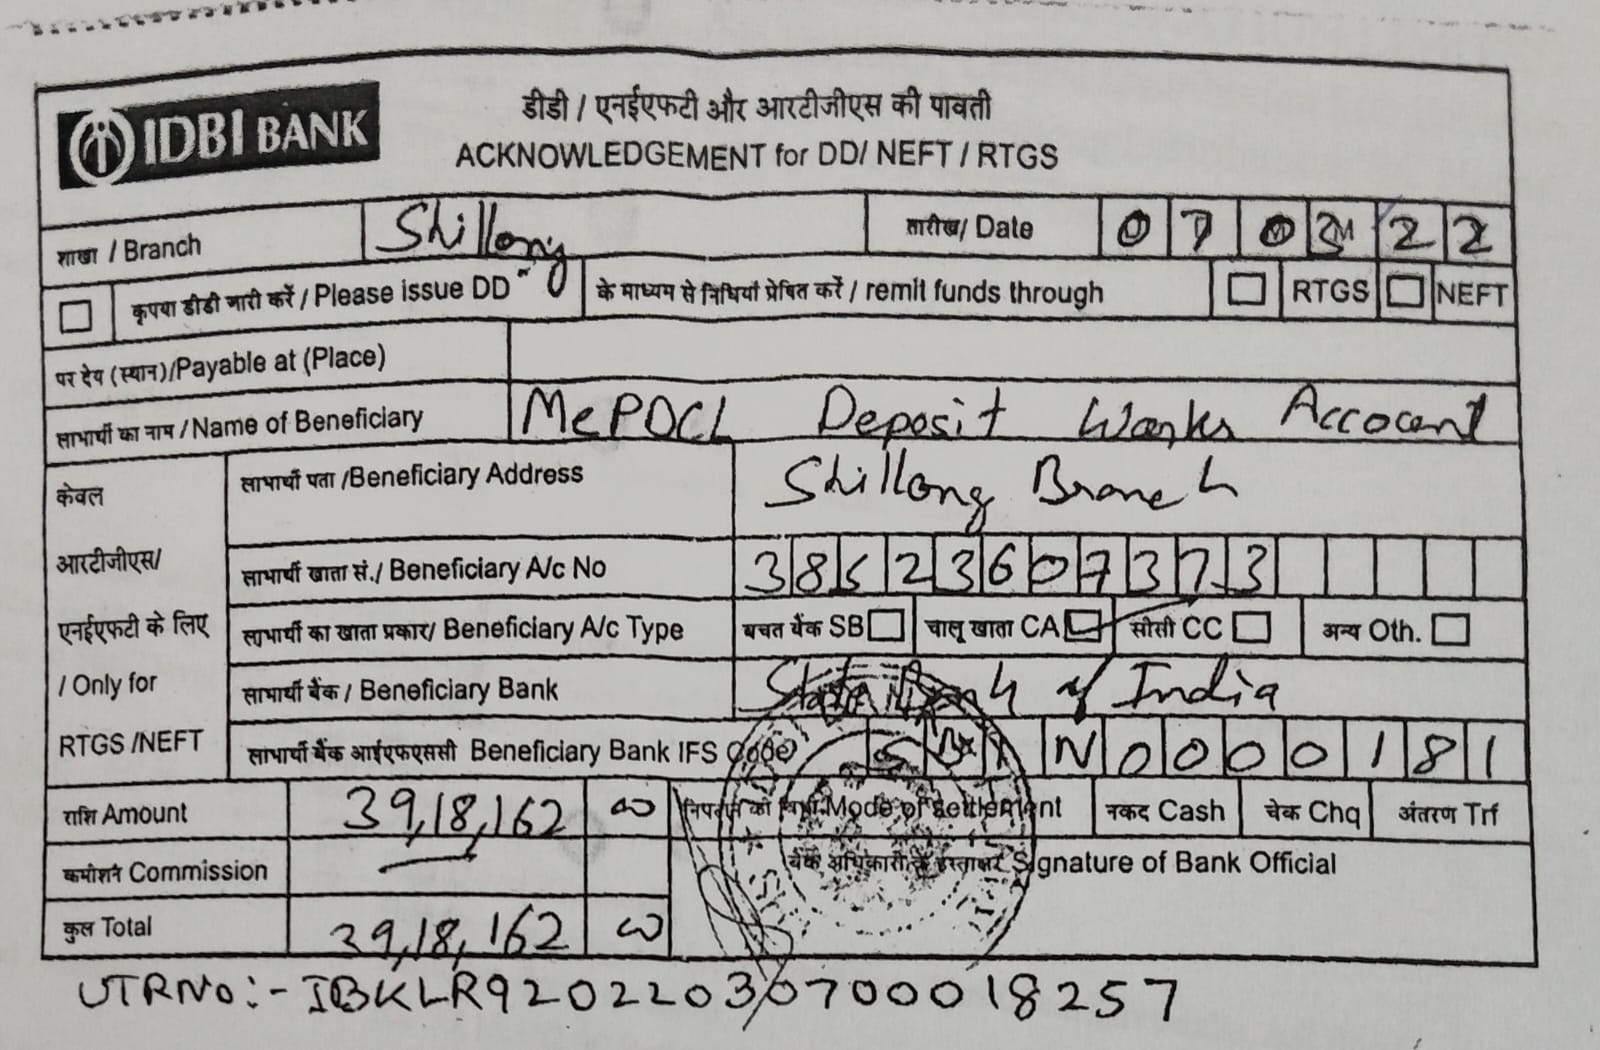 IDBI BANK
डीडी / एनईएफटी और आरटीजीएस की पावती
ACKNOWLEDGEMENT for DD/ NEFT / RTGS
शाखा / Branch Shillong तारीख/ Date 07 03 22
कृपया डीडी जारी करें / Please issue DD के माध्यम से निधियाँ प्रेषित करें / remit funds through RTGS NEFT
पर देय (स्थान)/Payable at (Place)
लाभार्थी का नाम / Name of Beneficiary MePDCL Deposit Works Account
केवल
आरटीजीएस/
एनईएफटी के लिए
/ Only for
RTGS /NEFT
लाभार्थी पता /Beneficiary Address Shillong Branch
लाभार्थी खाता सं./ Beneficiary A/c No 38523607373
लाभार्थी का खाता प्रकार/ Beneficiary A/c Type बचत बैंक SB चालू खाता CA सीसी CC अन्य Oth.
लाभार्थी बैंक / Beneficiary Bank State Bank of India
लाभार्थी बैंक आईएफएससी Beneficiary Bank IFS Code SBIN0000181
राशि Amount 39,18,162 00 Mode of Settlement नकद Cash चेक Chq अंतरण Trf
कमीशन Commission — बैंक अधिकारी के हस्ताक्षर Signature of Bank Official
कुल Total 39,18,162 00
UTR No:- IBKLR92022030700018257